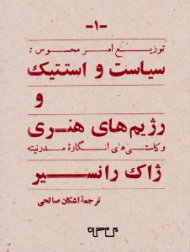 -۱-
توزیع امر محسوس:
سیاست و استتیک
و
رژیم‌های هنری
و کاستی‌های انگاره مدرنیته
ژاک رانسیر
ترجمهٔ اشکان صالحی